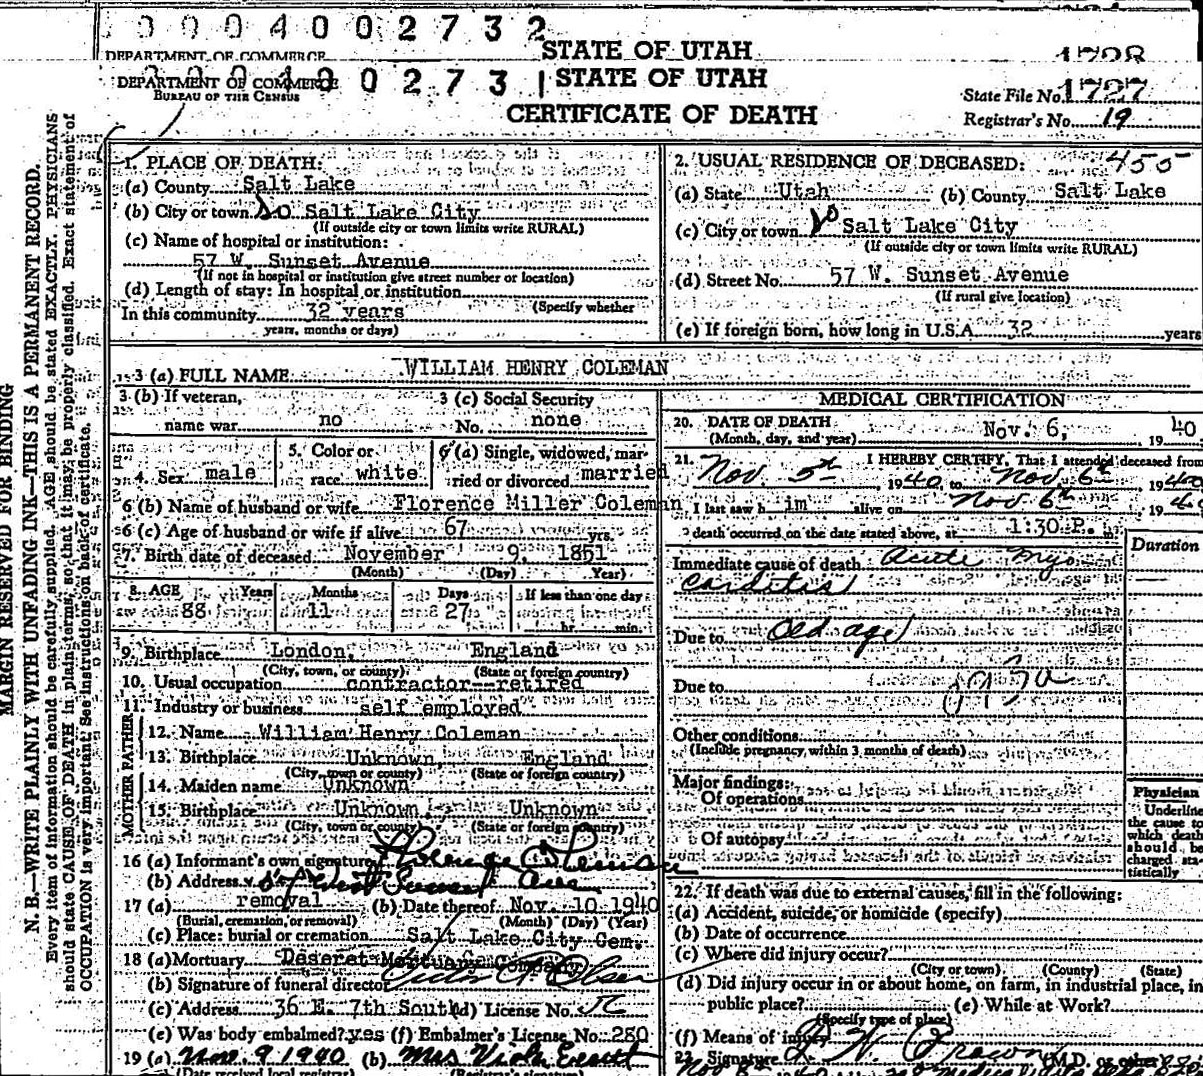 0004002732
DEPARTMENT OF COMMERCE STATE OF UTAH 1728
0004002731
DEPARTMENT OF COMMERCE STATE OF UTAH
BUREAU OF THE CENSUS
CERTIFICATE OF DEATH
State File No. 1727
Registrar's No. 19
MARGIN RESERVED FOR BINDING
N. B.—WRITE PLAINLY WITH UNFADING INK—THIS IS A PERMANENT RECORD.
Every item of information should be carefully supplied. AGE should be stated EXACTLY. PHYSICIANS
should state CAUSE OF DEATH in plain terms, so that it may be properly classified. Exact statement of
OCCUPATION is very important. See instructions on back of certificate.
1. PLACE OF DEATH:
(a) County Salt Lake
(b) City or town So Salt Lake City
(If outside city or town limits write RURAL)
(c) Name of hospital or institution:
57 W. Sunset Avenue
(If not in hospital or institution give street number or location)
(d) Length of stay: In hospital or institution
(Specify whether
In this community 32 years
years, months or days)
2. USUAL RESIDENCE OF DECEASED: 455
(a) State Utah (b) County Salt Lake
(c) City or town So Salt Lake City
(If outside city or town limits write RURAL)
(d) Street No. 57 W. Sunset Avenue
(If rural give location)
(e) If foreign born, how long in U.S.A. 32 years
3 (a) FULL NAME WILLIAM HENRY COLEMAN
3 (b) If veteran,
name war no
3 (c) Social Security
No. none
4. Sex male
5. Color or
race white
6 (a) Single, widowed, mar-
ried or divorced married
6 (b) Name of husband or wife Florence Miller Coleman
6 (c) Age of husband or wife if alive 67 yrs.
7. Birth date of deceased November 9, 1851
(Month) (Day) Year)
8. AGE Years Months Days If less than one day
88 11 27 hr. min.
9. Birthplace London, England
(City, town, or county) (State or foreign country)
10. Usual occupation contractor--retired
11. Industry or business self employed
FATHER
12. Name William Henry Coleman
13. Birthplace Unknown, England
(City, town or county) (State or foreign country)
MOTHER
14. Maiden name Unknown
15. Birthplace Unknown, Unknown
(City, town or county) (State or foreign country)
16 (a) Informant's own signature Florence Coleman
(b) Address 57 West Sunset Ave
17 (a) removal (b) Date thereof Nov. 10 1940
(Burial, cremation, or removal) (Month) (Day) (Year)
(c) Place: burial or cremation Salt Lake City Cem.
18 (a) Mortuary Deseret Mortuary Company
(b) Signature of funeral director
(c) Address 36 E. 7th South (d) License No.
(e) Was body embalmed? yes (f) Embalmer's License No. 280
19 (a) Nov. 9 1940 (b) Mrs Viola Evertt
(Date received local registrar) (Registrar's signature)
MEDICAL CERTIFICATION
20. DATE OF DEATH
(Month, day, and year) Nov. 6, 1940
21. I HEREBY CERTIFY, That I attended deceased from
Nov. 5th 1940, to Nov. 6th 1940
I last saw him alive on Nov 6th, 194
death occurred on the date stated above, at 1:30 P. m.
Duration
Immediate cause of death Acute Myo
carditis
Due to Old age
Due to
Other conditions
(Include pregnancy within 3 months of death)
Major findings:
Of operations
Of autopsy
Physician
Underline
the cause to
which death
should be
charged sta-
tistically
22. If death was due to external causes, fill in the following:
(a) Accident, suicide, or homicide (specify)
(b) Date of occurrence
(c) Where did injury occur?
(City or town) (County) (State)
(d) Did injury occur in or about home, on farm, in industrial place, in
public place? (e) While at Work?
(Specify type of place)
(f) Means of injury
Signature (M.D. or other)